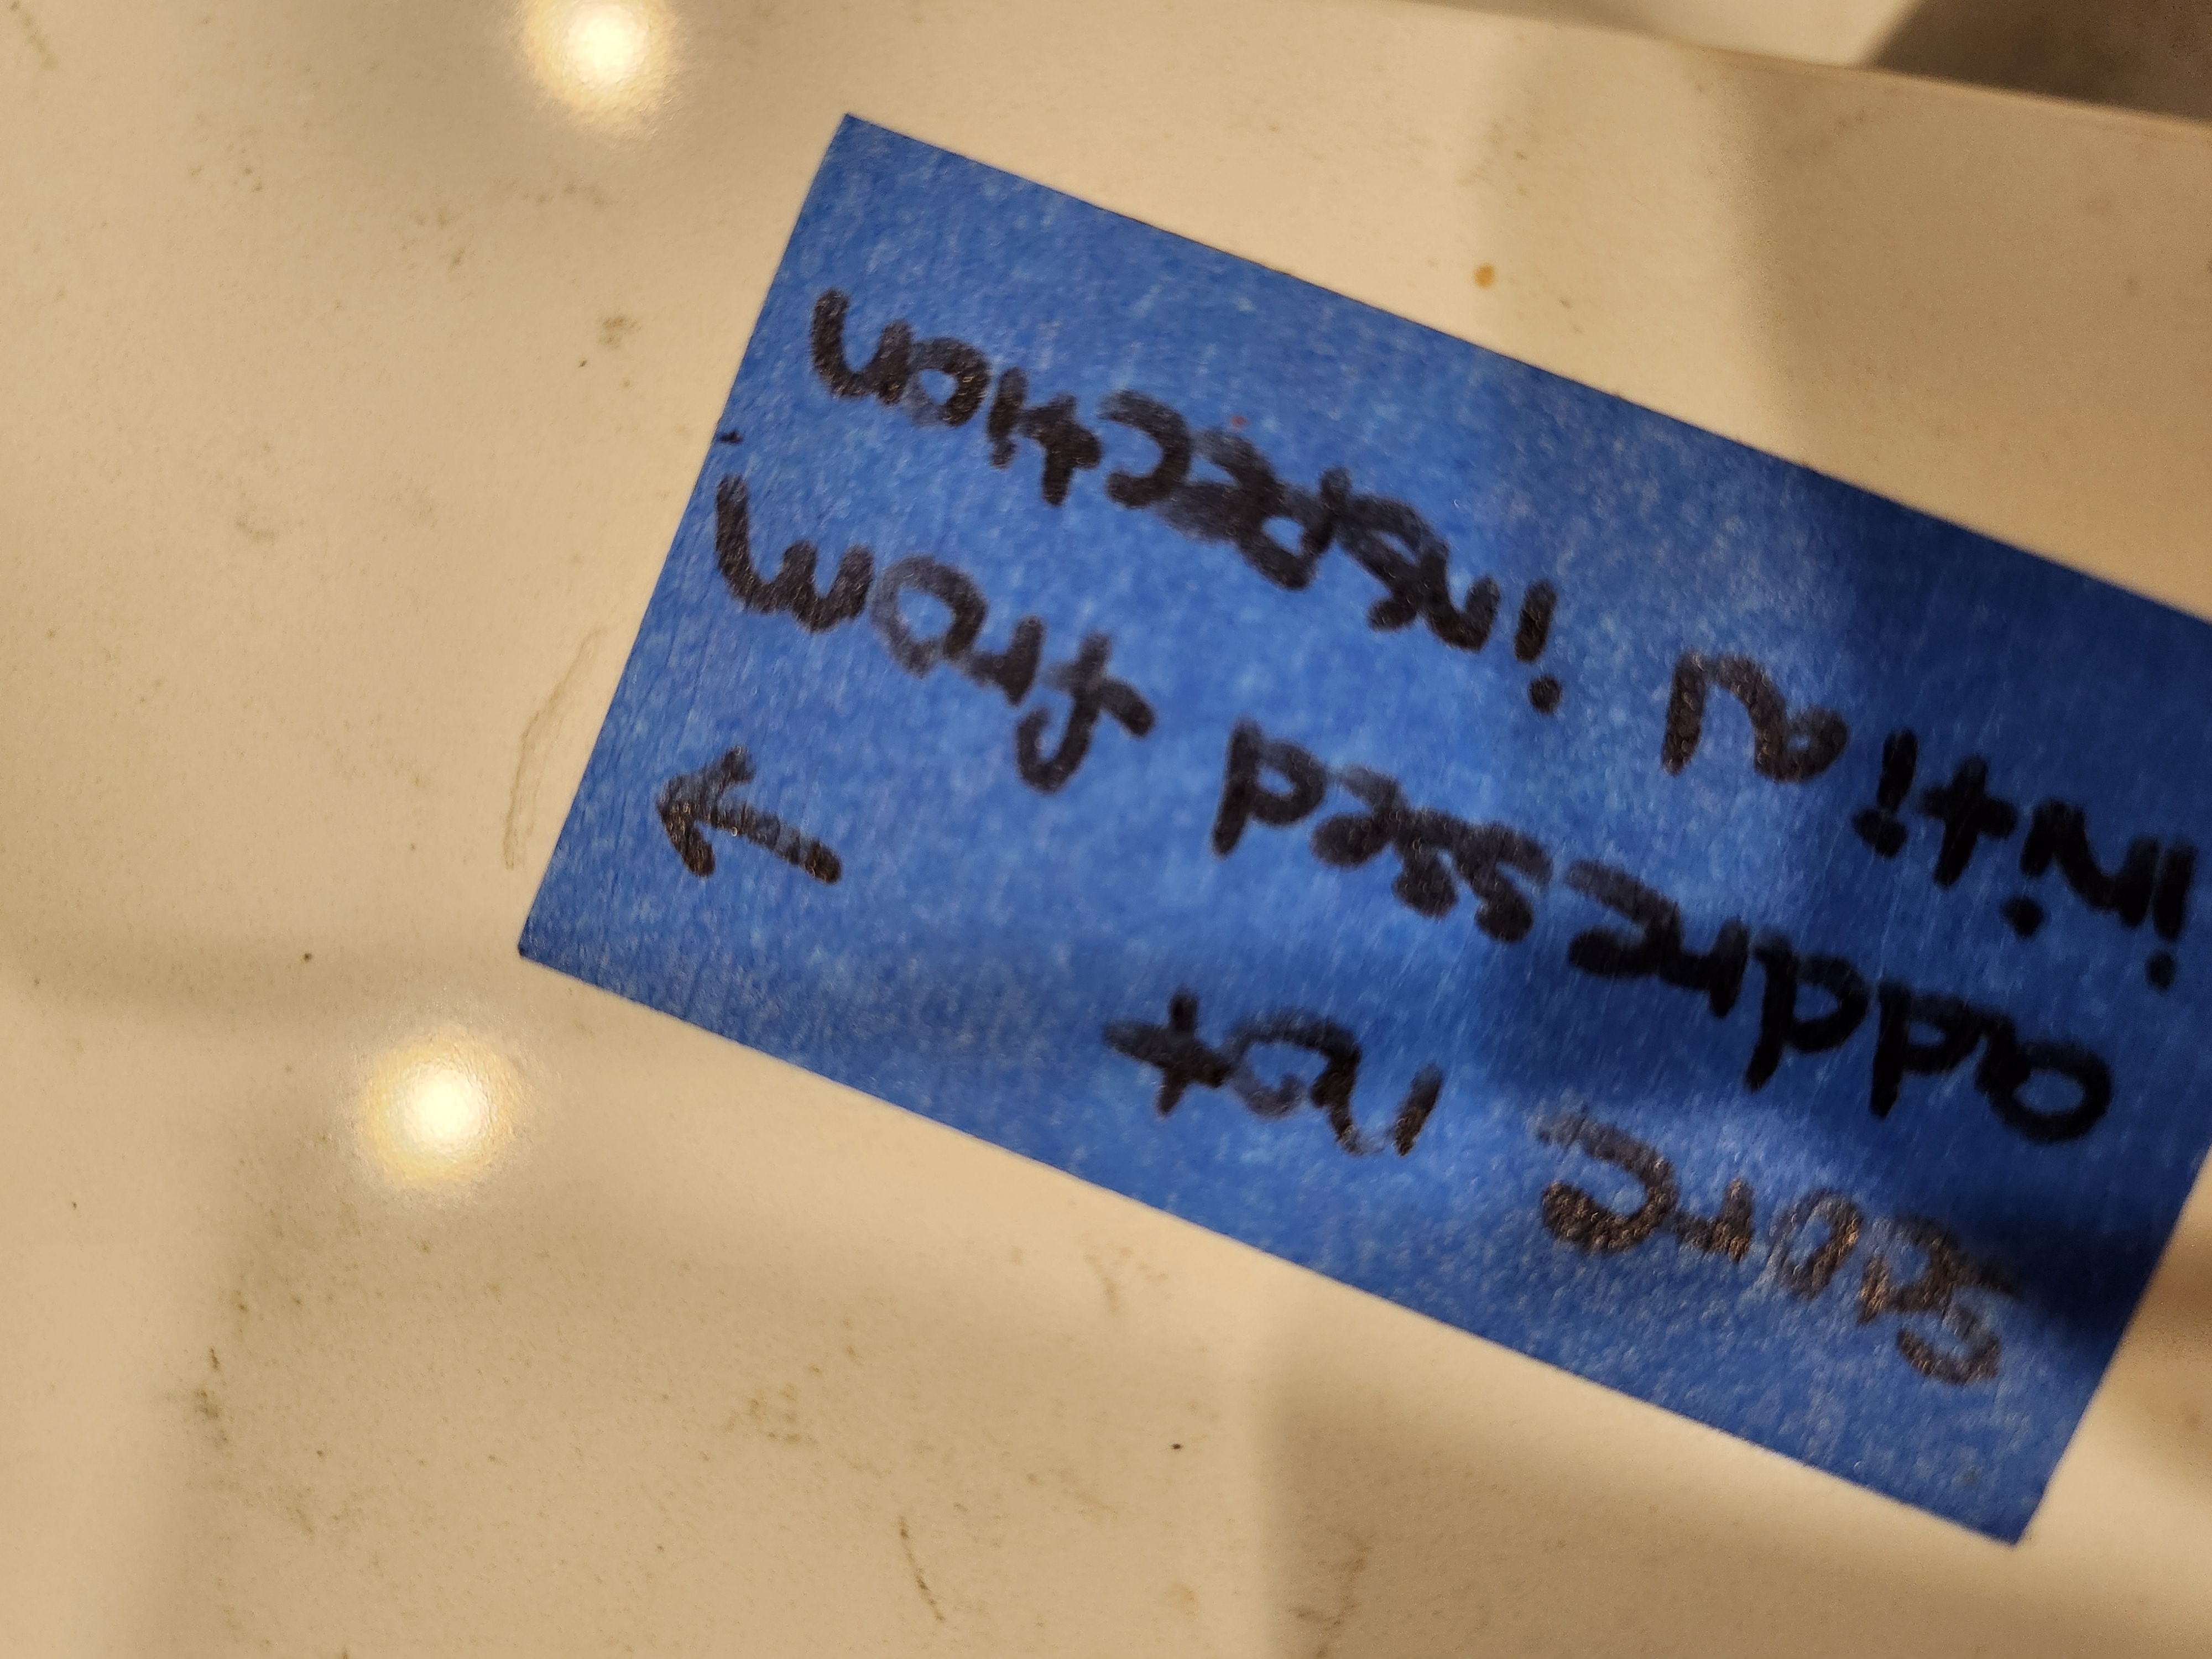 Score not
→
addressed from
initial inspection